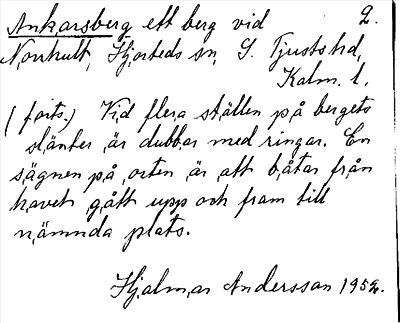 Ankarsberg ett berg vid 2.
Norrhult, Hjorteds sn, S. Tjusts hd,
Kalm. l.
(forts.) Vid flera ställen på bergets
slänter är dubbar med ringar. En
sägnen på orten är att båtar från
havet gått upp och fram till
nämnda plats.
Hjalmar Andersson 1952.